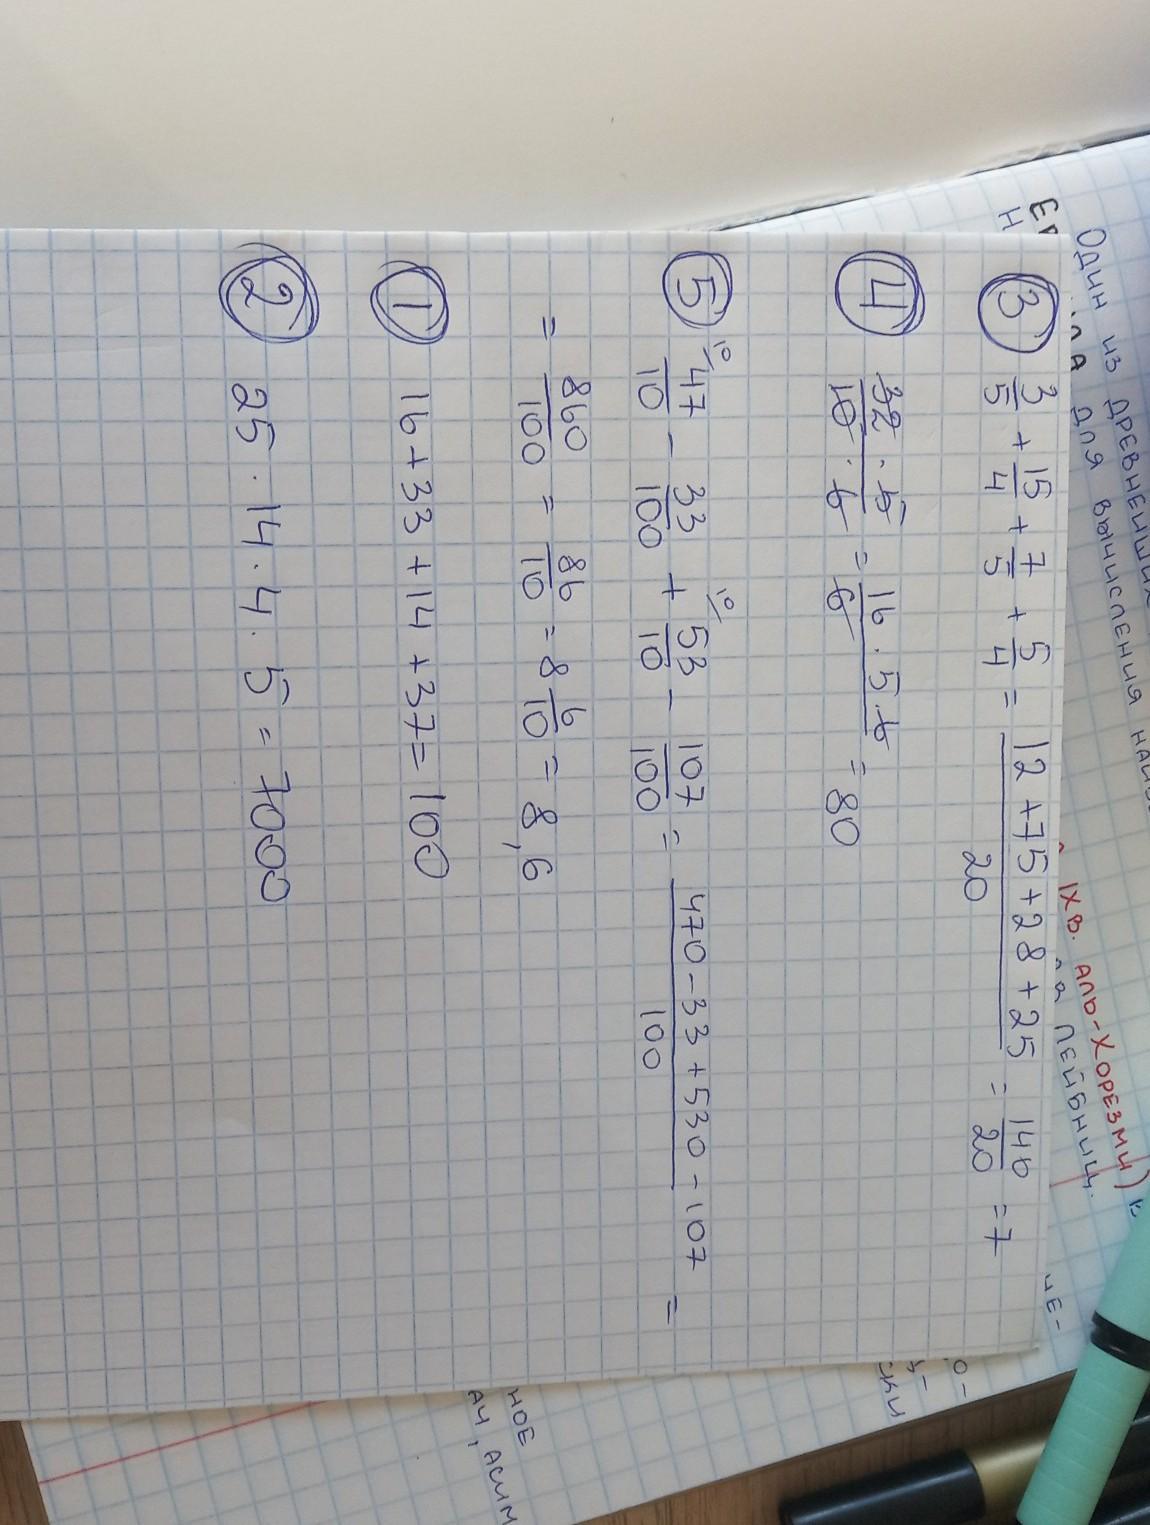 Один из древнейших
для вычисления
IX в. аль-Хорезми) в
Лейбниц.
③ 3/5 + 15/4 + 7/5 + 5/4 = (12 + 75 + 28 + 25)/20 = 140/20 = 7
④ (32 · 5)/(10 · 6) = (16 · 5 · 6)/6 = 80
⑤ 10/ 47/10 - 33/100 + 10/ 53/10 - 107/100 = (470 - 33 + 530 - 107)/100 =
= 860/100 = 86/10 = 8 6/10 = 8,6
① 16 + 33 + 14 + 37 = 100
② 25 · 14 · 4 · 5 = 7000